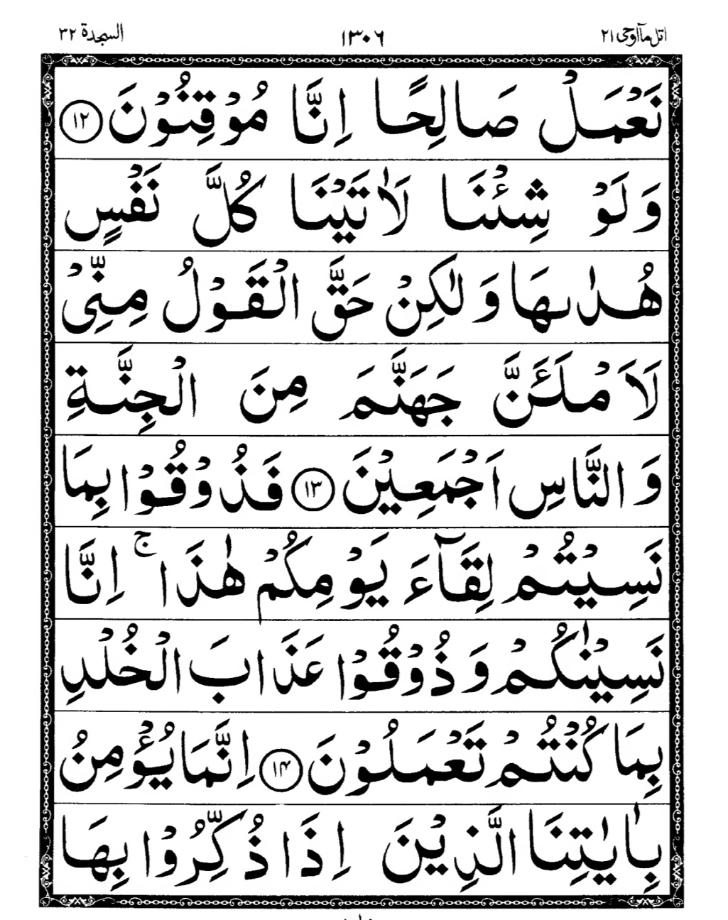 اتل مآ اوحی ۲۱ ۱۳۰۶ السجدة ۳۲
نَعْمَلْ صَالِحًا اِنَّا مُوْقِنُوْنَ ۱۲
وَلَوْ شِئْنَا لَاٰتَيْنَا كُلَّ نَفْسٍ
هُدٰىهَا وَلٰكِنْ حَقَّ الْقَوْلُ مِنِّىْ
لَاَمْلَـَٔنَّ جَهَنَّمَ مِنَ الْجِنَّةِ
وَالنَّاسِ اَجْمَعِيْنَ ۱۳ فَذُوْقُوْا بِمَا
نَسِيْتُمْ لِقَآءَ يَوْمِكُمْ هٰذَا ۚ اِنَّا
نَسِيْنٰكُمْ وَذُوْقُوْا عَذَابَ الْخُلْدِ
بِمَا كُنْتُمْ تَعْمَلُوْنَ ۱۴ اِنَّمَا يُؤْمِنُ
بِاٰيٰتِنَا الَّذِيْنَ اِذَا ذُكِّرُوْا بِهَا